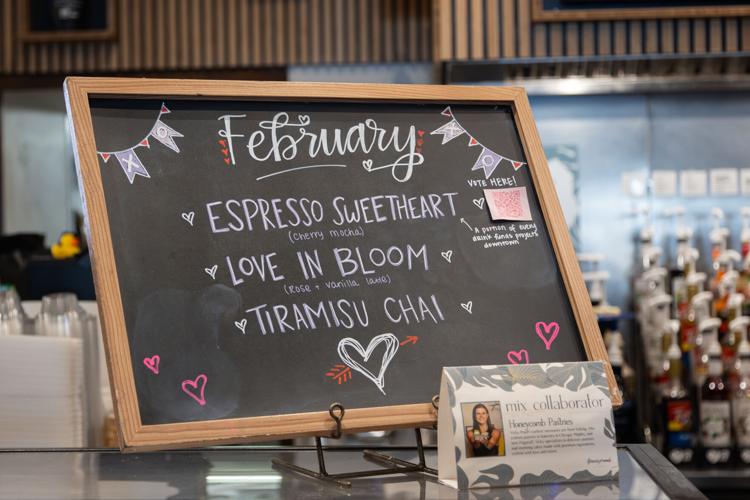 February
X O
X O
VOTE HERE!
ESPRESSO SWEETHEART
(cherry mocha)
A portion of every
drink funds projects
downtown
LOVE IN BLOOM
(Rose + vanilla latte)
TIRAMISU CHAI
mix collaborator
Honeycomb Pastries